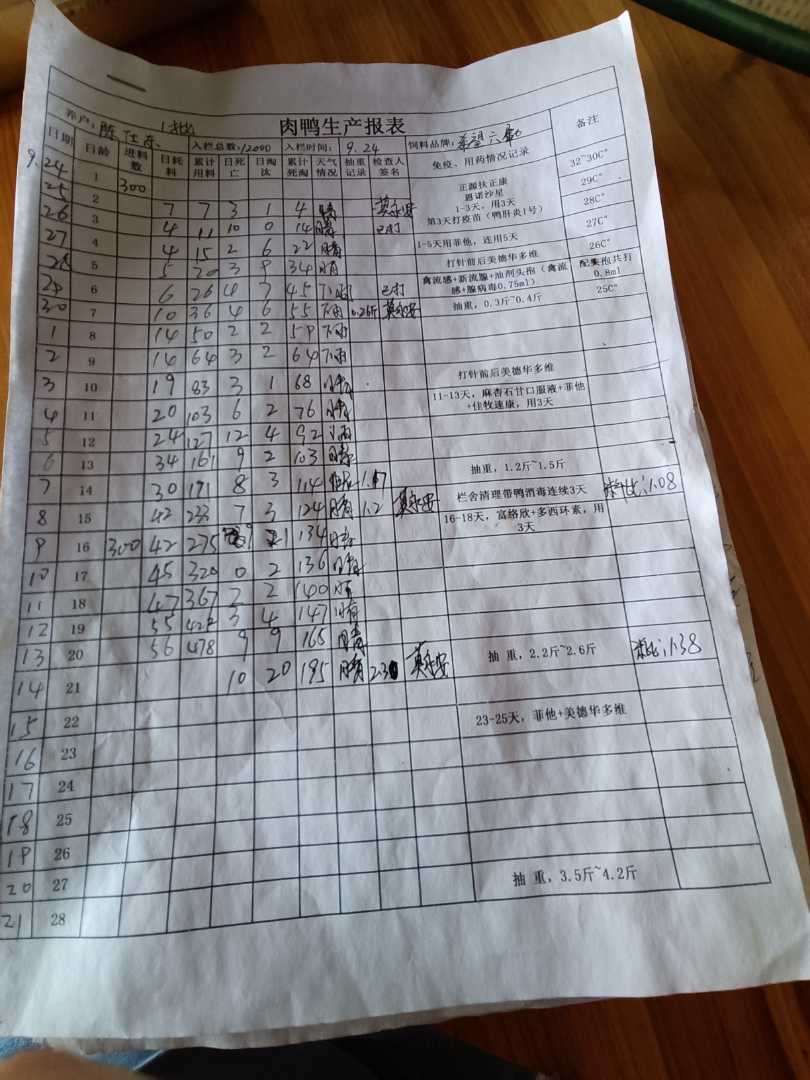 肉鸭生产报表
养户: 陈仕东 1批 入栏总数:12000 入栏时间: 9.24 饲料品牌: 希望六和
日期 日龄 进料数 日耗料 累计用料 日死亡 日淘汰 累计死淘 天气情况 抽重记录 检查人签名 免疫、用药情况记录 备注
9.24 1 300 32~30C°
25 2 7 7 3 1 4 晴 莫永安 正源扶正康 恩诺沙星 1-3天,用3天 29C°
26 3 4 11 10 0 14 晴 已打 第3天打疫苗(鸭肝炎1号) 28C°
27 4 4 15 2 6 22 晴 1-5天用菲他,连用5天 27C°
28 5 5 20 3 9 34 晴 打针前后美德华多维 26C°
29 6 6 26 4 7 45 小雨 已打 禽流感+新流腺+油剂头孢(禽流感+腺病毒0.75ml) 配头孢共打0.8ml
30 7 10 36 4 6 55 下雨 0.26斤 莫永安 抽重,0.3斤~0.4斤 25C°
1 8 14 50 2 2 59 下雨
2 9 14 64 3 2 64 下雨 打针前后美德华多维
3 10 19 83 3 1 68 晴 11-13天,麻杏石甘口服液+菲他+佳牧速康,用3天
4 11 20 103 6 2 76 晴
5 12 24 127 12 4 92 小雨
6 13 34 161 9 2 103 晴 抽重,1.2斤~1.5斤
7 14 30 191 8 3 114 1.17 栏舍清理带鸭消毒连续3天 料比:1.08
8 15 42 233 7 3 124 晴 1.2 莫永安 16-18天,富络欣+多西环素,用3天
9 16 300 42 275 9 1 134 晴
10 17 45 320 0 2 136 晴
11 18 47 367 2 2 140 晴
12 19 55 422 3 4 147 晴
13 20 56 478 9 9 165 晴 抽 重,2.2斤~2.6斤 料比:1.38
14 21 10 20 195 晴 莫永安
15 22 23-25天,菲他+美德华多维
16 23
17 24
18 25
19 26
20 27 抽 重,3.5斤~4.2斤
21 28